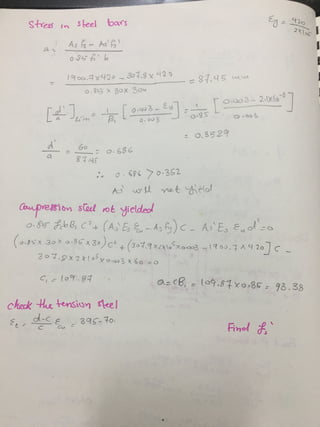 Stress in steel bars
εy = 420 / 2×10⁵
a = As fy - As' fs' / 0.85 fc' b
= 1900.7×420 - 307.9×420 / 0.85 × 30 × 300 = 87.45 mm
[d'/a]lim = 1/β1 [0.003 - εy / 0.003] = 1/0.85 [0.003 - 2.1×10⁻³ / 0.003]
= 0.3529
d'/a = 60/87.45 = 0.686
∴ 0.686 > 0.352
As' will not yield
Compression steel not yielded
0.85 fc' b β1 C² + (As' Es εcu - As fy) C - As' Es εcu d' = 0
C -
307.9×2×10⁵×0.003×60 = 0
C1 = 109.87
a = cβ1 = 109.87×0.85 = 93.38
check the tension steel
εt = d-c/c εcu = 395.70
Final fs'